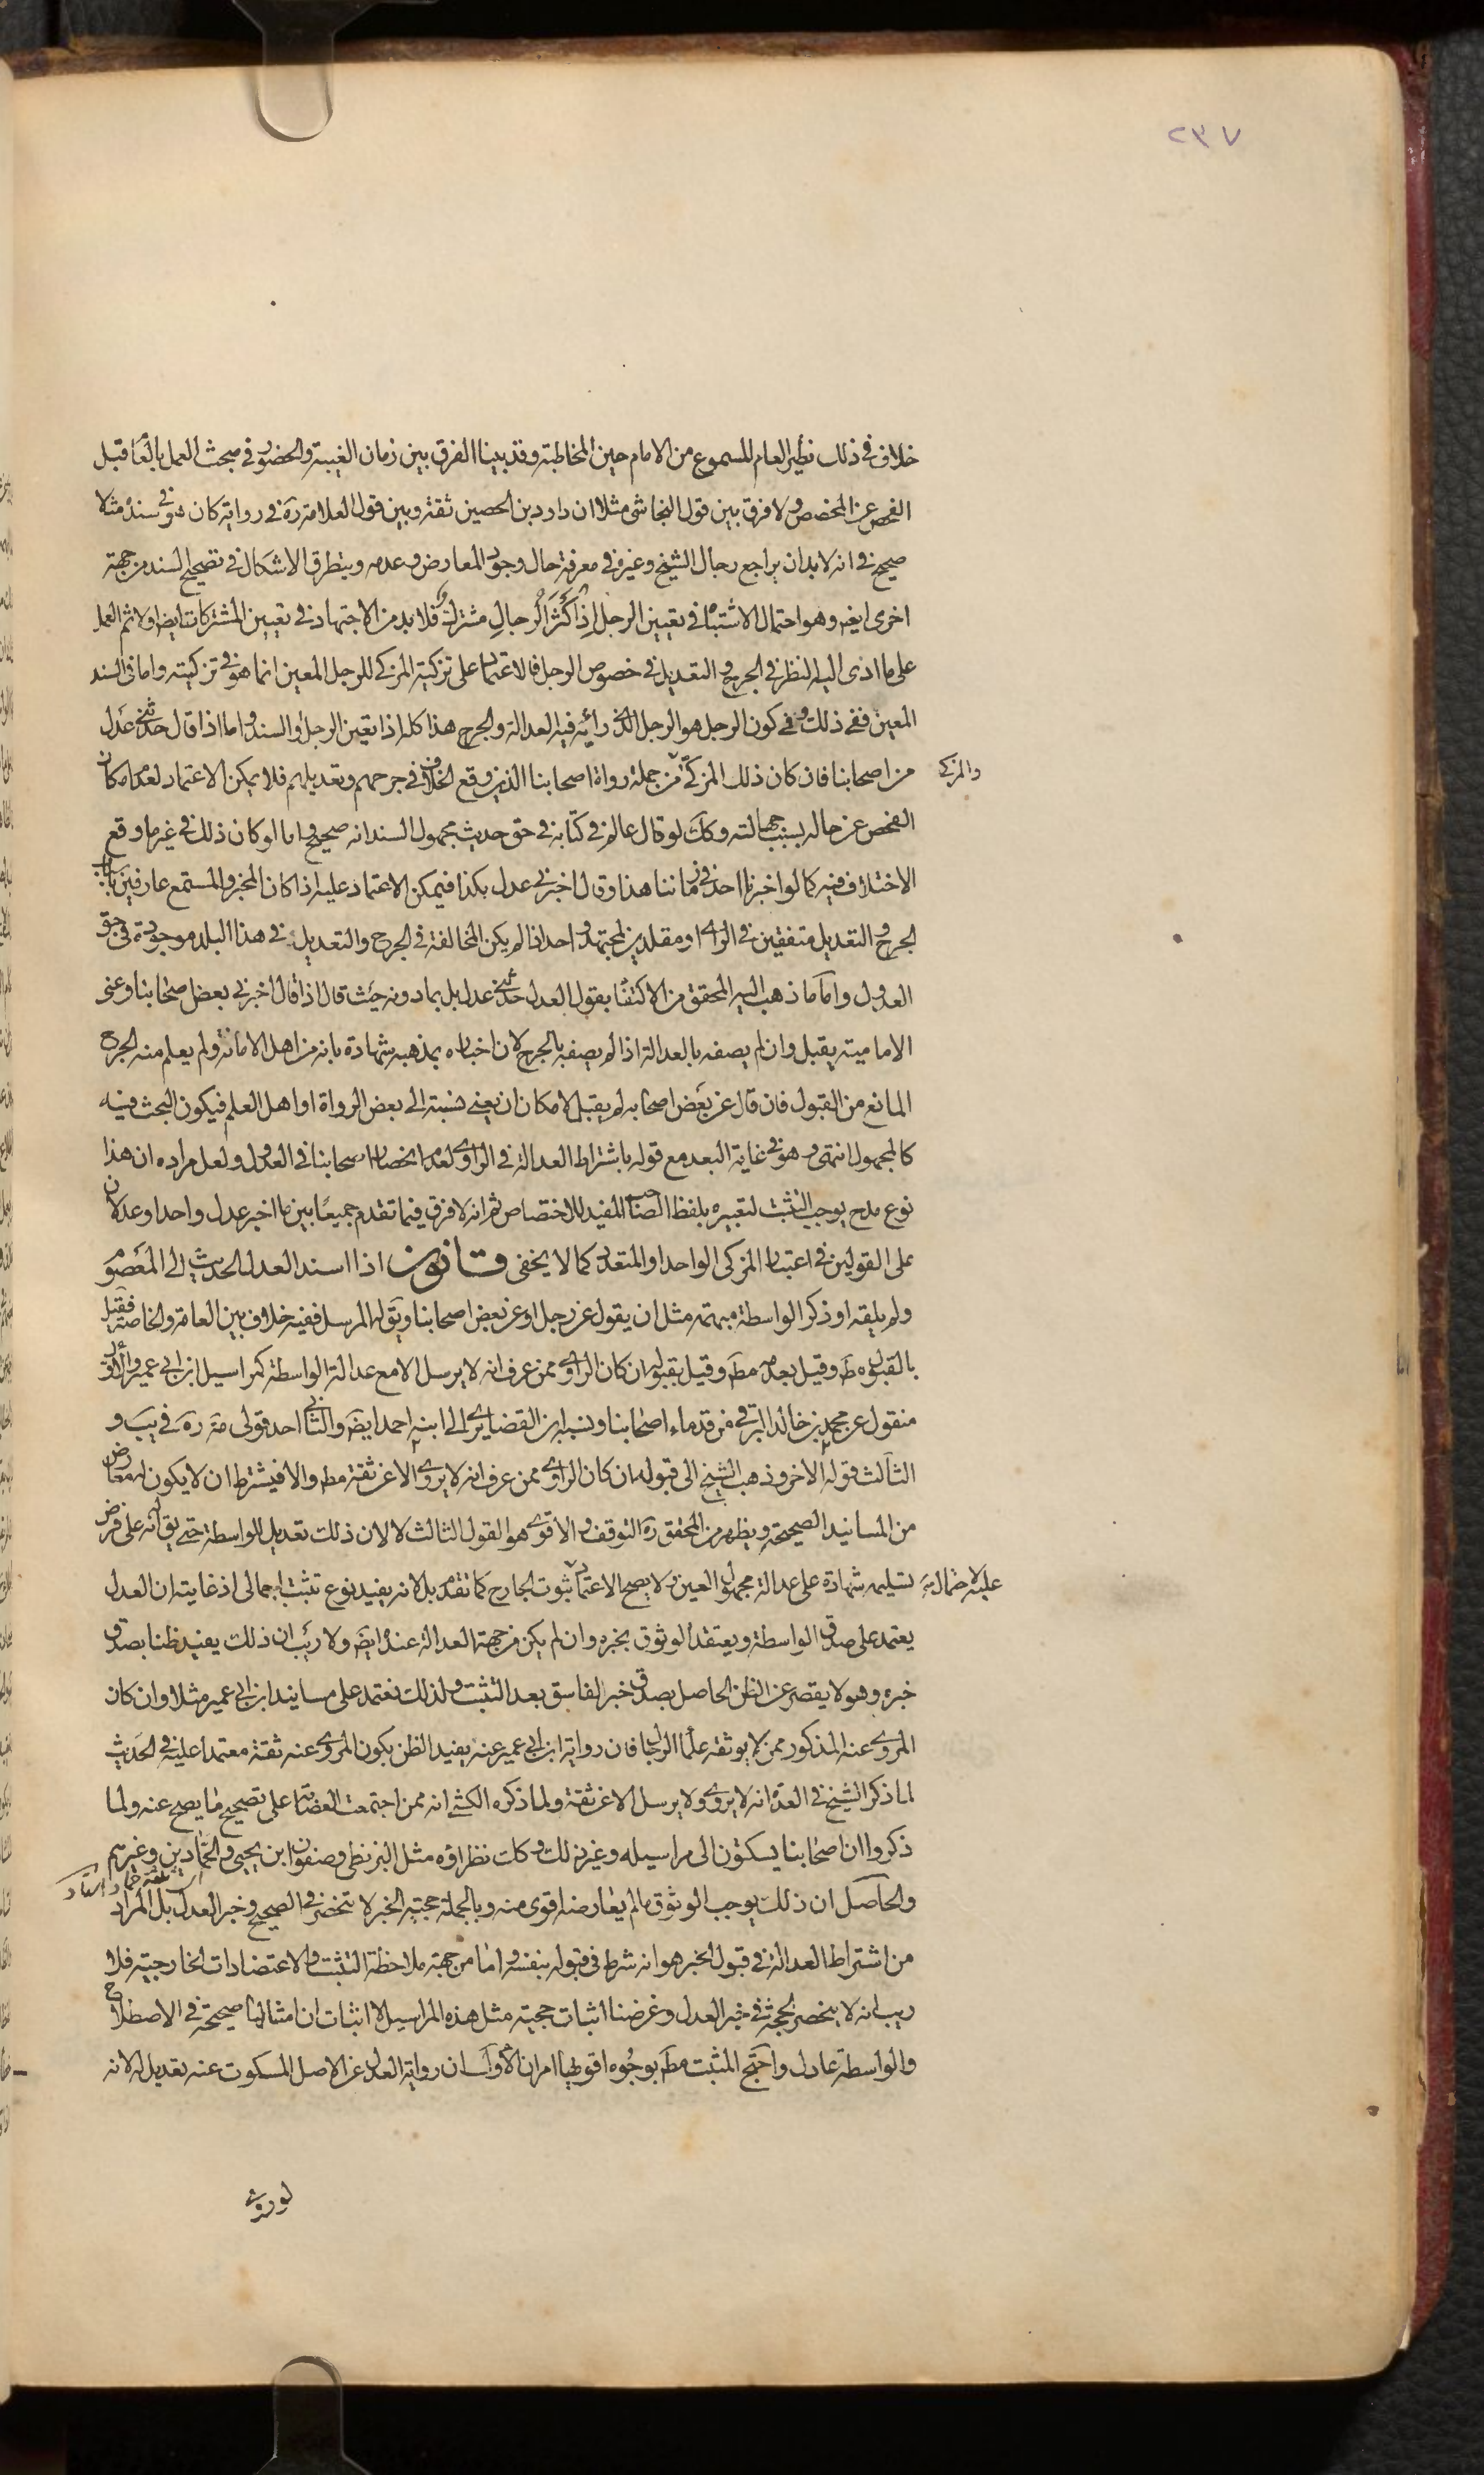 ٢٣٧
خلاف في ذلك نظير العام المسموع من الامام حين المخاطبة وقد بينا الفرق بين زمان الغيبة والحضور في مبحث العمل بالعام قبل
الفحص عن المخصص ولا فرق بين قول النجاشى مثلا ان داود بن الحصين ثقة وبين قول العلامة ره في رواية كان هو في سنده مثلا
صحيح في انه لا بد ان يراجع رجال الشيخ وغيره في معرفة حال وجود المعارض وعدمه ويتطرق الاشكال في تصحيح السند من جهة
اخرى ايضه وهو احتمال الاشتباه في تعيين الرجل اذ اكثر الرجال مشتركة فلا بد من الاجتهاد في تعيين المشتركات ايضا اولا ثم العمل
على ما ادى اليه النظر في الجرح والتعديل في خصوص الرجل فالاعتماد على تزكية المزكى للرجل المعين انما هو في تزكيته واما في السند
المعين ففى ذلك وفي كون الرجل هو الرجل الذى رأيه فيه العدالة والجرح هذا كله اذا تعين الرجل والسند واما اذا قال حدثنى عدل
من اصحابنا فان كان ذلك المزكى من جملة رواة اصحابنا الذين وقع الخلاف في جرحهم وتعديلهم فلا يمكن الاعتماد لعدم امكان
والمزكى
الفحص عن حاله بسبب جهالته وكك لو قال عالم في كتابه في حق حديث مجهول السند انه صحيح واما لو كان ذلك في غير ما وقع
الاختلاف فيه كما لو اخبرنا احد في زماننا هذا وقال اخبرنى عدل بكذا فيمكن الاعتماد عليه اذا كان المخبر والمستمع عارفين
الجرح والتعديل متفقين في الراى او مقلدين لمجتهد واحد اذا لم يكن المخالفة في الجرح والتعديل في هذا البلد موجودة في حق
العدول واما ما ذهب اليه المحقق من الاكتفاء بقول العدل حدثنى عدل بل بما دونه حيث قال اذا قال اخبرنى بعض اصحابنا وعنى
الامامية يقبل وان لم يصفه بالعدالة اذا لم يصفه بالجرح لان اخباره بمذهبه شهادة بانه من اهل الامانة ولم يعلم منه الجرح
المانع من القبول فان قال عن بعض اصحابه لم يقبل لامكان ان يعنى نسبته الى بعض الرواة او اهل العلم فيكون البحث فيه
كالمجهول انتهى وهو في غاية البعد مع قوله باشتراط العدالة في الراوى لعدم انحصار اصحابنا في العدول ولعل مراده ان هذا
نوع مدح يوجب التثبت لتعبيره بلفظ الصاحب المفيد للاختصاص ثم انه لا فرق فيما تقدم جميعا بين ما اخبر عدل واحد او عدلان
على القولين في اعتبار المزكى الواحد او المتعدد كما لا يخفى قانون اذا اسند العدل الحديث الى المعصوم
ولم يلقه او ذكر الواسطة مبهمة مثل ان يقول عن رجل او عن بعض اصحابنا ويقال له المرسل ففيه خلاف بين العامة والخاصة فقيل
بالقبول مط وقيل بعدمه مط وقيل بقبوله ان كان الراوى ممن عرف انه لا يرسل الا مع عدالة الواسطة كمراسيل ابن ابى عمير والاول
منقول عن محمد بن خالد البرقى من قدماء اصحابنا ونسبه ابن الغضايرى الى ابنه احمد ايضه والثانى احد قولى مة ره في يب و
الثالث قوله الاخر وذهب الشيخ الى قبوله ان كان الراوى ممن عرف انه لا يروى الا عن ثقة مط والا فيشترط ان لا يكون له معارض
من المسانيد الصحيحة ويظهر من المحقق ره التوقف والاقوى هو القول الثالث لا لان ذلك تعديل للواسطة حتى يق انه على فرض
تسليمه شهادة على عدالة مجهول العين ولا يصح الاعتماد عليه لاحتمال ثبوت الجارح كما تقدم بل لانه يفيد نوع تثبت اجمالى اذ غايته ان العدل
يعتمد على صدق الواسطة ويعتقد الوثوق بخبره وان لم يكن من جهة العدالة عنده ايضه ولا ريب ان ذلك يفيد ظنا بصدق
خبره وهو لا يقصر عن الظن الحاصل بصدق خبر الفاسق بعد التثبت ولذلك نعتمد على مسانيد ابن ابى عمير مثلا وان كان
المروى عنه المذكور ممن لا يوثقه علماء الرجال فان رواية ابن ابى عمير عنه يفيد الظن بكون المروى عنه ثقة معتمدا عليه في الحديث
لما ذكر الشيخ في العدة انه لا يروى ولا يرسل الا عن ثقة ولما ذكره الكشى انه ممن اجتمعت العصابة على تصحيح ما يصح عنه ولما
ذكروا ان اصحابنا يسكنون الى مراسيله وغير ذلك وكك نظراؤه مثل البزنطى وصفوان ابن يحيى والحمادين وغيرهم
والحاصل ان ذلك يوجب الوثوق ما لم يعارضه اقوى منه وبالجملة حجية الخبر لا تنحصر في الصحيح وخبر العدل بل المراد
من اشتراط العدالة في قبول الخبر هو انه شرط في قبوله بنفسه واما من جهة ملاحظة التثبت والاعتضادات الخارجية فلا
ريب انه لا ينحصر الحجة في خبر العدل وغرضنا اثبات حجية مثل هذه المراسيل لا اثبات ان امثالها صحيحة في الاصطلاح
والواسطة عادل واحتج المثبت مط بوجوه اقويها امران الاول ان رواية العدل عن الاصل المسكوت عنه تعديل له لانه